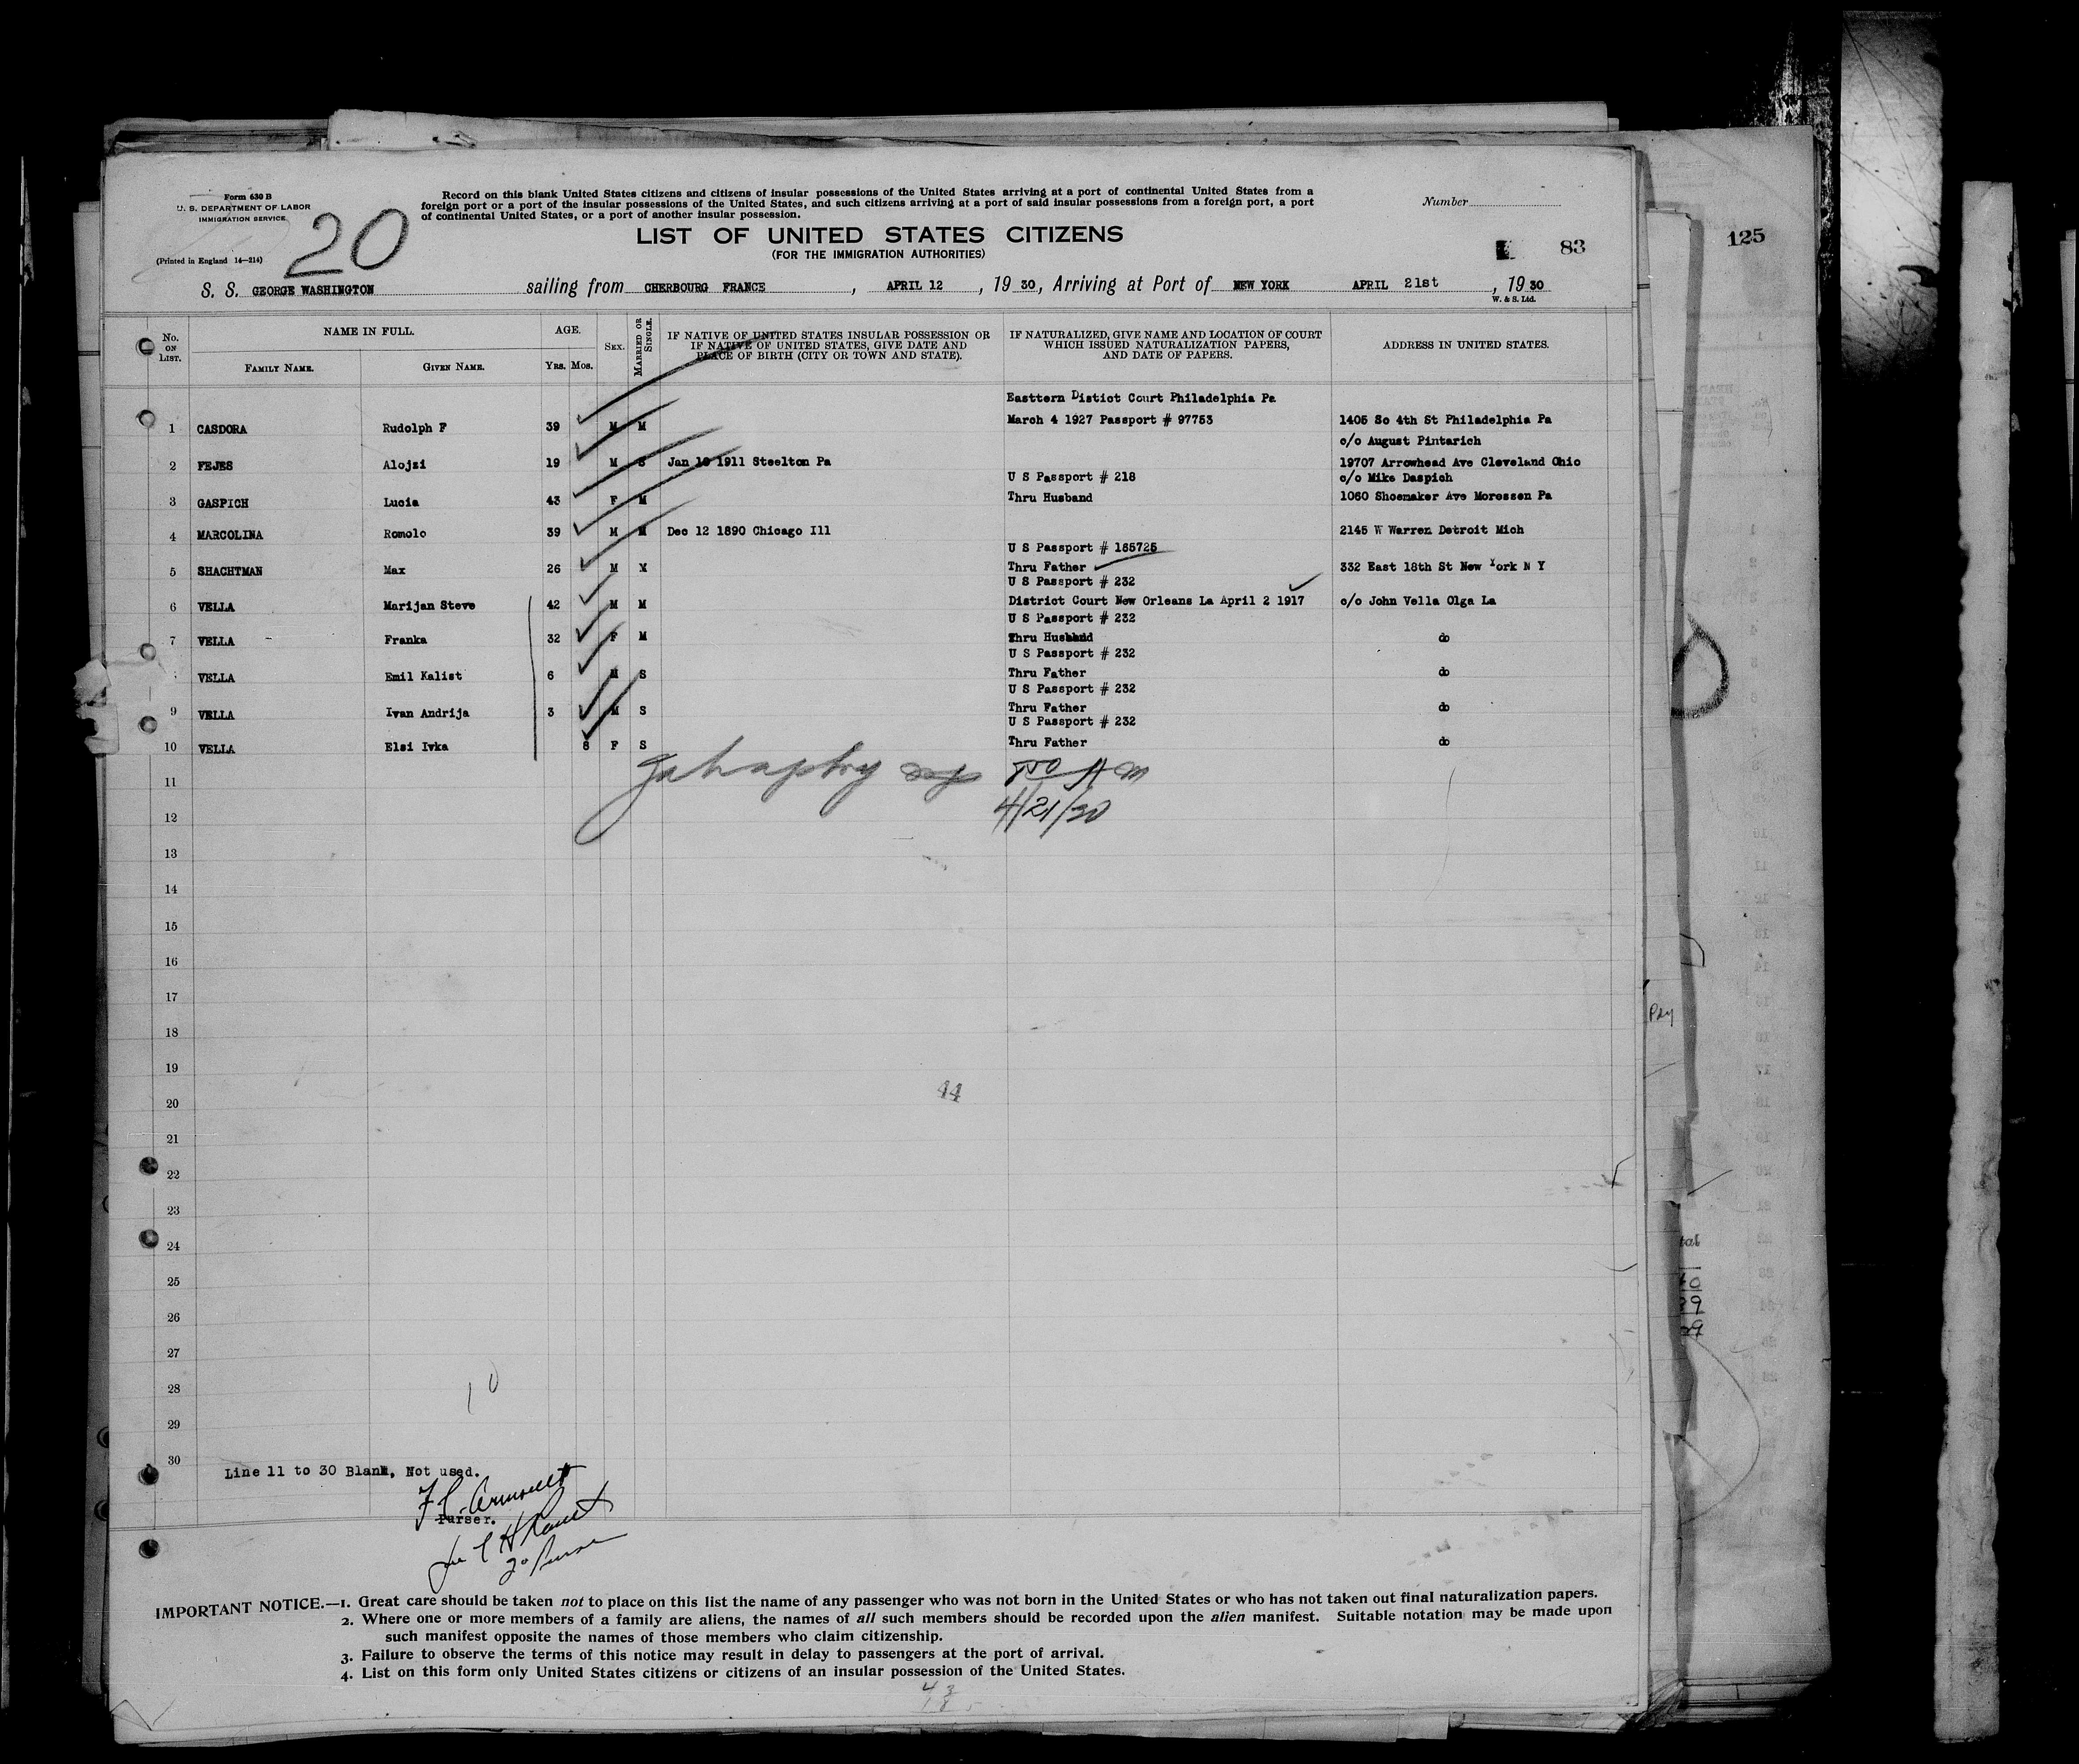 Form 630 B
U. S. DEPARTMENT OF LABOR
IMMIGRATION SERVICE
(Printed in England 14—214)
20
Record on this blank United States citizens and citizens of insular possessions of the United States arriving at a port of continental United States from a
foreign port or a port of the insular possessions of the United States, and such citizens arriving at a port of said insular possessions from a foreign port, a port
of continental United States, or a port of another insular possession.
Number
LIST OF UNITED STATES CITIZENS
(FOR THE IMMIGRATION AUTHORITIES)
83
125
S. S. GEORGE WASHINGTON sailing from CHERBOURG FRANCE, APRIL 12, 1930, Arriving at Port of NEW YORK APRIL 21st, 1930
W. & S. Ltd.
No. ON LIST.
NAME IN FULL.
FAMILY NAME. GIVEN NAME.
AGE.
YRS. MOS.
SEX.
MARRIED OR SINGLE.
IF NATIVE OF UNITED STATES INSULAR POSSESSION OR
IF NATIVE OF UNITED STATES, GIVE DATE AND
PLACE OF BIRTH (CITY OR TOWN AND STATE).
IF NATURALIZED, GIVE NAME AND LOCATION OF COURT
WHICH ISSUED NATURALIZATION PAPERS,
AND DATE OF PAPERS.
ADDRESS IN UNITED STATES.
Easttern Distict Court Philadelphia Pa
1 CASDORA Rudolph F 39 M M March 4 1927 Passport # 97753 1405 So 4th St Philadelphia Pa
c/o August Pintarich
2 FEJES Alojzi 19 M S Jan 1911 Steelton Pa 19707 Arrowhead Ave Cleveland Ohio
U S Passport # 218 c/o Mike Daspich
3 GASPICH Lucia 43 F M Thru Husband 1060 Shoemaker Ave Moressen Pa
4 MARCOLINA Romolo 39 M M Dec 12 1890 Chicago Ill 2145 W Warren Detroit Mich
U S Passport # 185725
5 SHACHTMAN Max 26 M M Thru Father 332 East 18th St New York N Y
U S Passport # 232
6 VELLA Marijan Steve 42 M M District Court New Orleans La April 2 1917 c/o John Vella Olga La
U S Passport # 232
7 VELLA Franka 32 F M Thru Husband do
U S Passport # 232
VELLA Emil Kalist 6 M S Thru Father do
U S Passport # 232
9 VELLA Ivan Andrija 3 M S Thru Father do
U S Passport # 232
10 VELLA Elsi Ivka 8 F S Thru Father do
11
4/21/30
12
13
14
15
16
17
18
19
44
20
21
22
23
24
25
26
27
28
10
29
30
Line 11 to 30 Blank, Not used.
Purser.
IMPORTANT NOTICE.—1. Great care should be taken not to place on this list the name of any passenger who was not born in the United States or who has not taken out final naturalization papers.
2. Where one or more members of a family are aliens, the names of all such members should be recorded upon the alien manifest. Suitable notation may be made upon
such manifest opposite the names of those members who claim citizenship.
3. Failure to observe the terms of this notice may result in delay to passengers at the port of arrival.
4. List on this form only United States citizens or citizens of an insular possession of the United States.